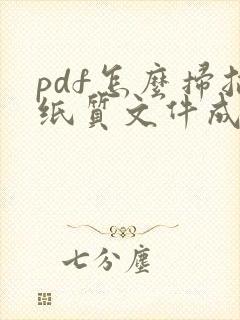 pdf怎麼掃描
纸質文件成
七分塵